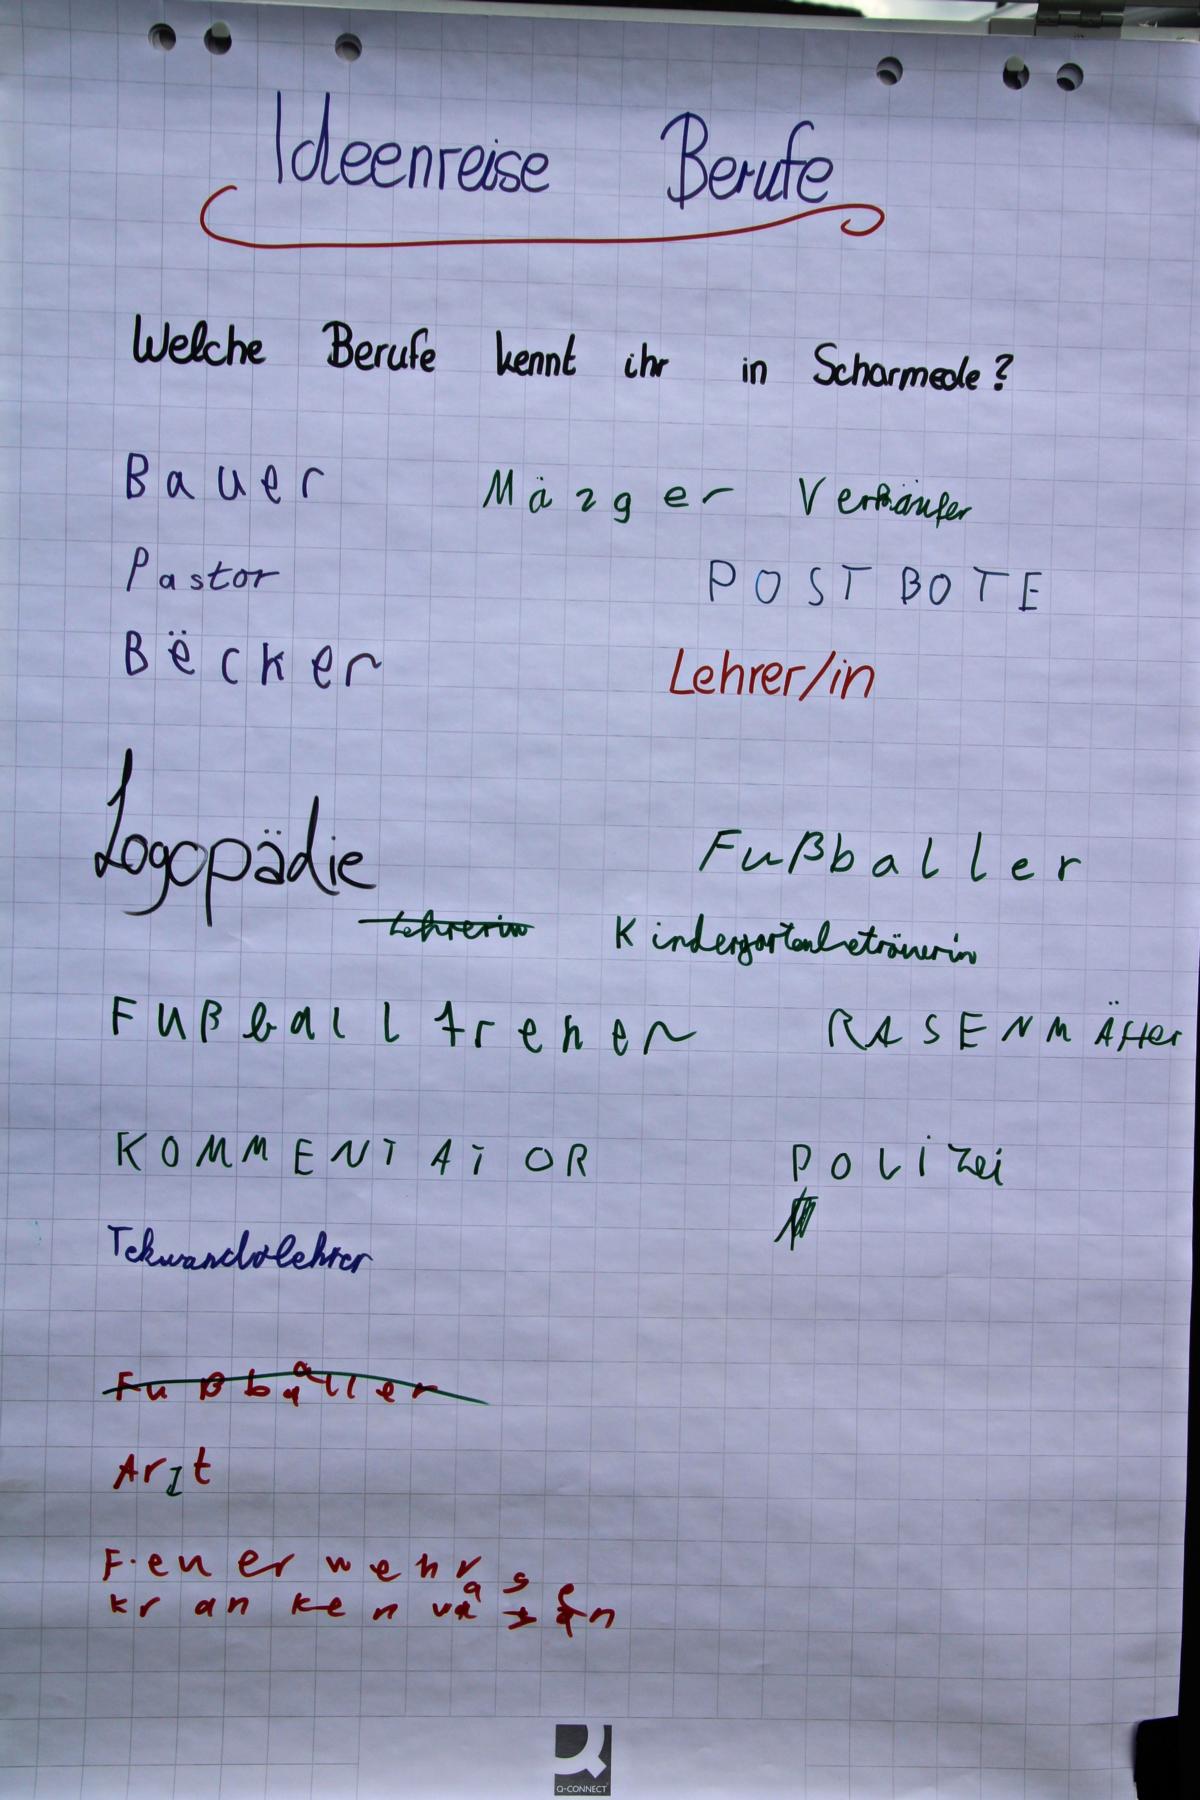 Ideenreise Berufe
Welche Berufe kennt ihr in Scharmede?
Bauer Mäzger Verkäufer
Pastor POSTBOTE
Bëcker Lehrer/in
Logopädie Fußballer
Lehrerin Kindergartenbeträuerin
Fußballtrener RASENMÄHer
KOMMENTATOR Polizei
Tekwandolehrer
Fußballer
Arzt
Feuerwehr
kranken
Q-CONNECT